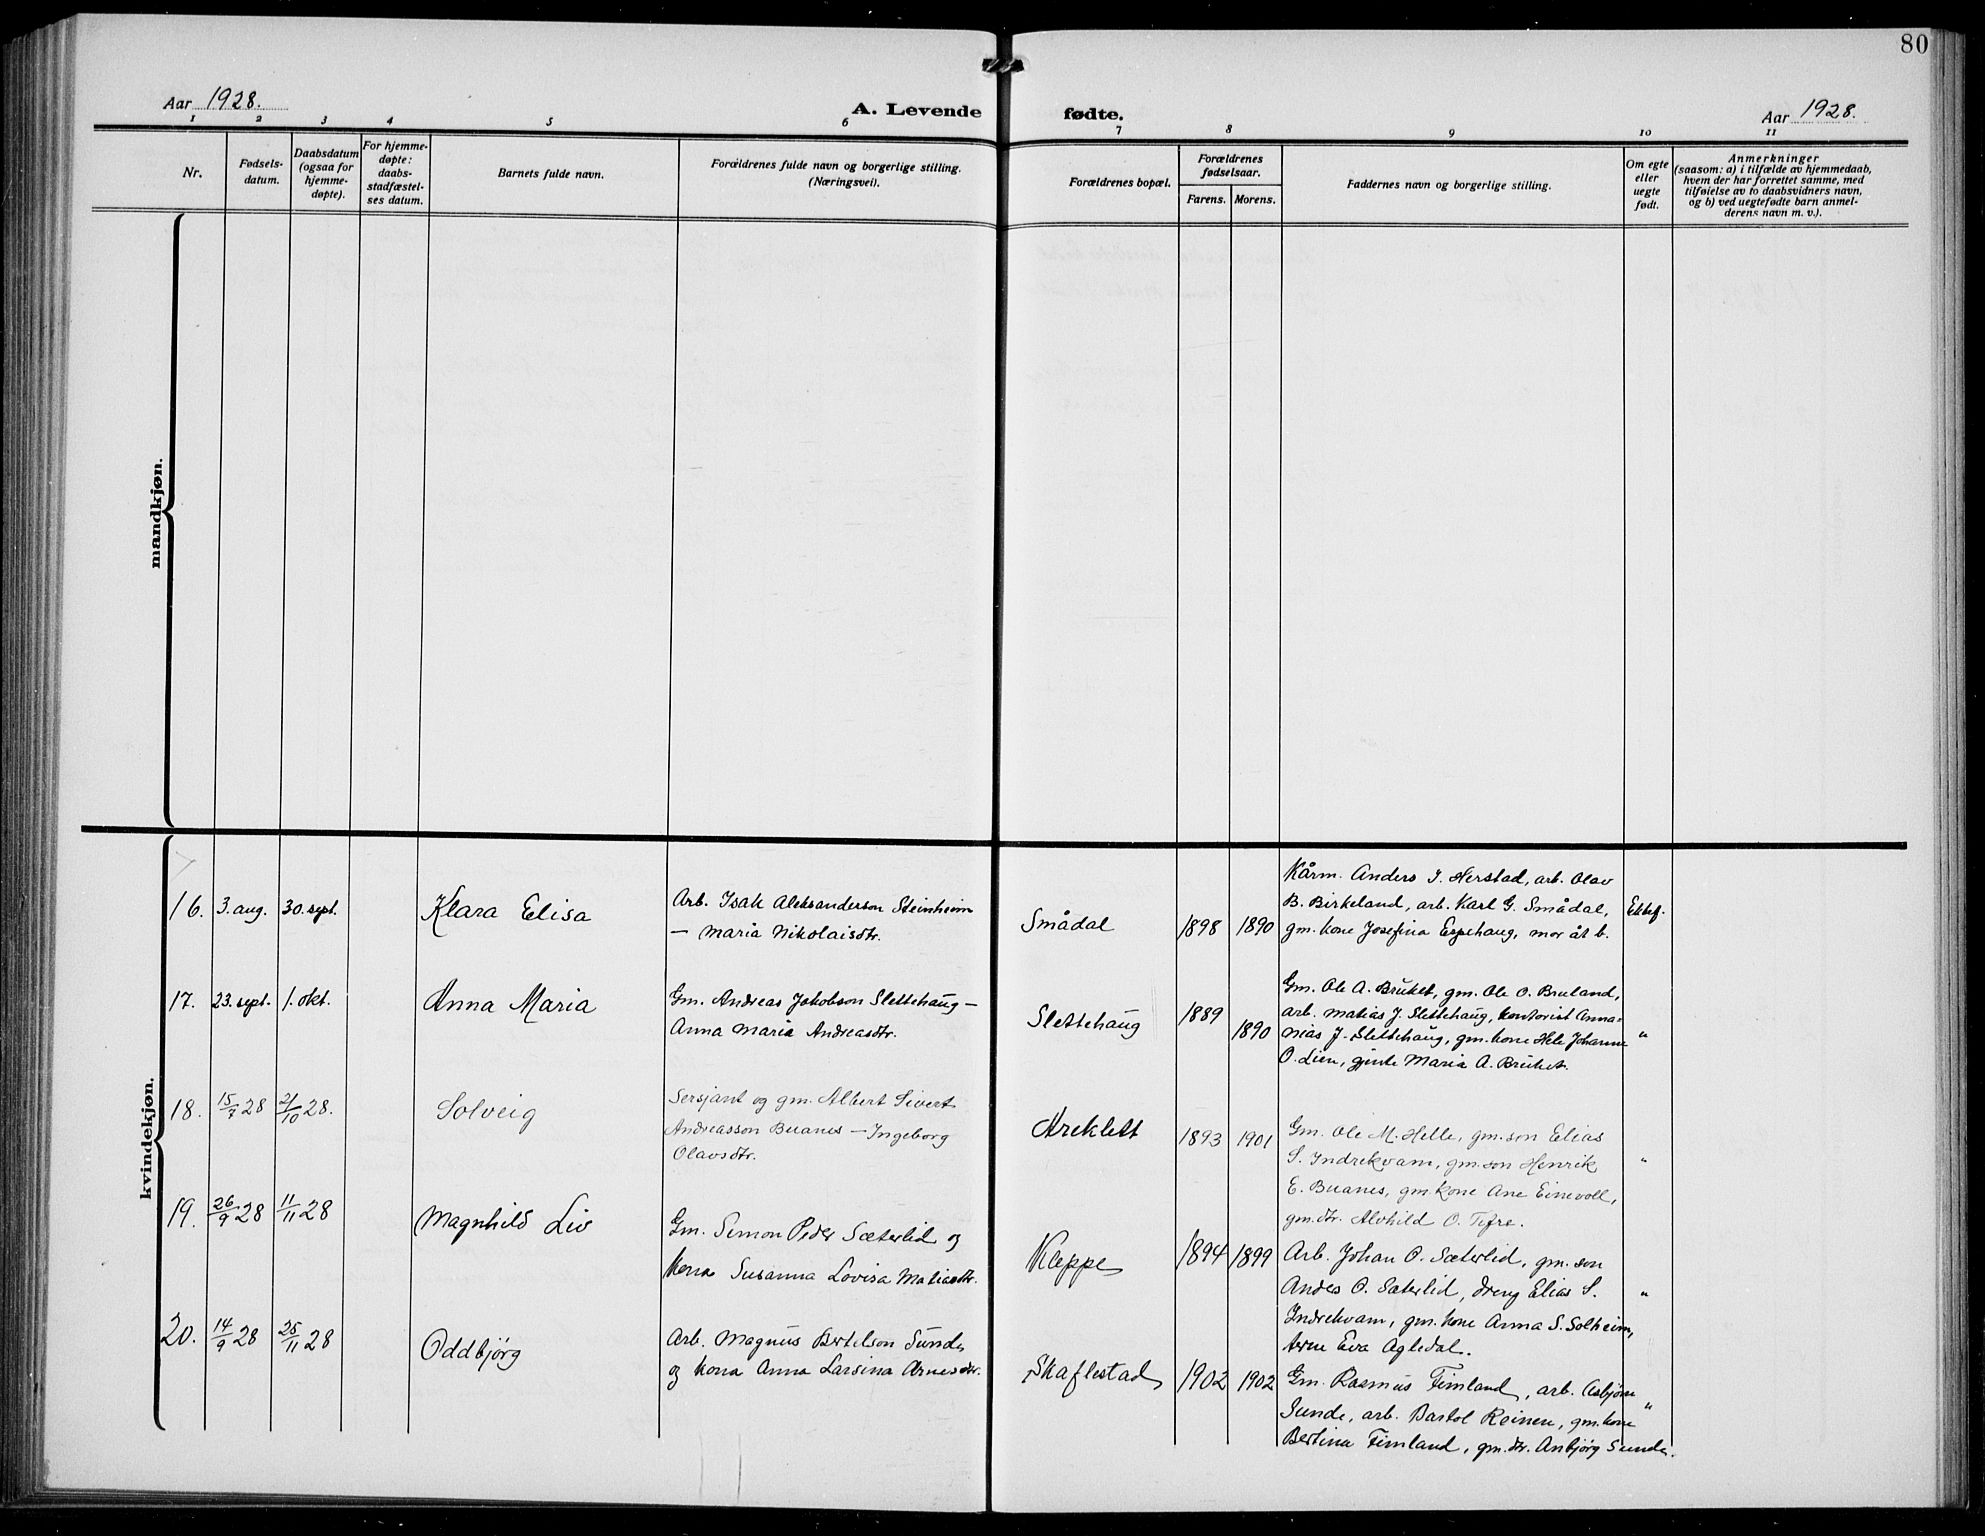 80
Aar 1928.
A. Levende
fødte.
Aar 1928.
1 2 3 4 5 6 7 8 9 10 11
Nr.
Fødsels-
datum.
Daabsdatum
(ogsaa for
hjemme-
døpte).
For hjemme-
døpte:
daabs-
stadfæstel-
ses datum.
Barnets fulde navn.
Forældrenes fulde navn og borgerlige stilling.
(Næringsvei).
Forældrenes bopæl.
Forældrenes
fødselsaar.
Farens. Morens.
Faddernes navn og borgerlige stilling.
Om egte
eller
uegte
født.
Anmerkninger
(saasom: a) i tilfælde av hjemmedaab,
hvem der har forrettet samme, med
tilføielse av to daabsvidners navn,
og b) ved uegtefødte barn anmel-
derens navn m. v.).
mandkjøn.
kvindekjøn.
16. 3. aug. 30. sept.
Klara Elisa
Arb. Isak Aleksanderson Steinheim
— Maria Nikolaisdtr.
Smådal
1898 1890
Kårm. Anders J. Herstad, arb. Olav
B. Birkeland, arb. Karl G. Smådal,
gm. kone Josefina Espehaug, mor åt b.
Ektef.
17. 23. sept. 1. okt.
Anna Maria
Gm. Andreas Jakobson Slettehaug —
Anna Maria Andreasdtr.
Slettehaug
1889 1890
Gm. Ole A. Bruket, gm. Ole O. Bruland,
arb. Matias J. Slettehaug, kontorist Anna-
nias J. Slettehaug, gm. kone Hele Johanne
O. Lien, gjente Maria A. Bruket.
"
18. 15/7 28 21/10 28.
Solveig
Sersjant og gm. Albert Sivert
Andreasson Buanes — Ingeborg
Olavsdtr.
Areklett
1893 1901
Gm. Ole M. Helle, gm. son Elias
S. Indrekvam, gm. son Henrik
E. Buanes, gm. kone Ane Einevoll,
gm. dtr. Alvhild O. Tefre.
"
19. 26/9 28 11/11 28
Magnhild Liv
Gm. Simon Peder Sæterlid og
kona Susanna Lovisa Matiasdtr.
Kleppe
1894 1899
Arb. Johan O. Sæterlid, gm. son
Anders O. Sæterlid, dreng Elias S.
Indrekvam, gm. kone Anna S. Solheim,
terne Eva Agledal.
"
20. 14/9 28 25/11 28
Oddbjörg
Arb. Magnus Bertelson Sunde
og kona Anna Larsina Arnesdtr.
Skaflestad
1902 1902
Gm. Rasmus Fimland, arb. Asbjörn
Sunde, arb. Bastol Reinen, gm. kone
Bertina Fimland, gm. dtr. Anbjörg Sunde.
"